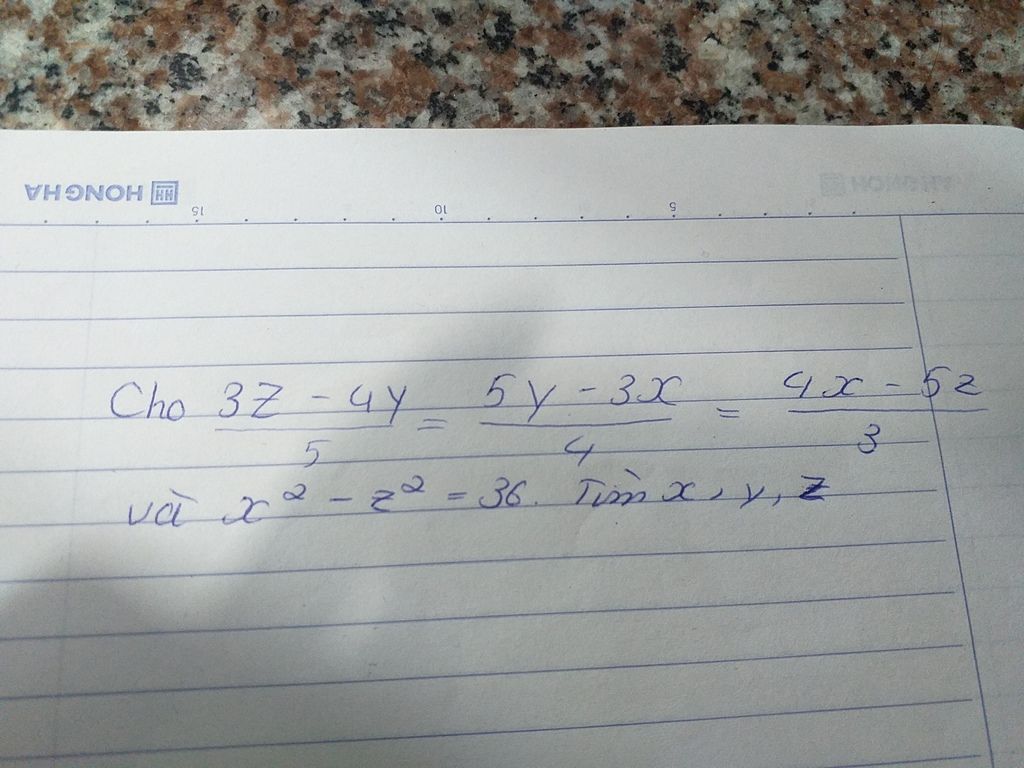 HONG HA
15 10 5
Cho \frac{3Z - 4y}{5} = \frac{5y - 3x}{4} = \frac{4x - 5z}{3}
và x² - z² = 36. Tìm x, y, z